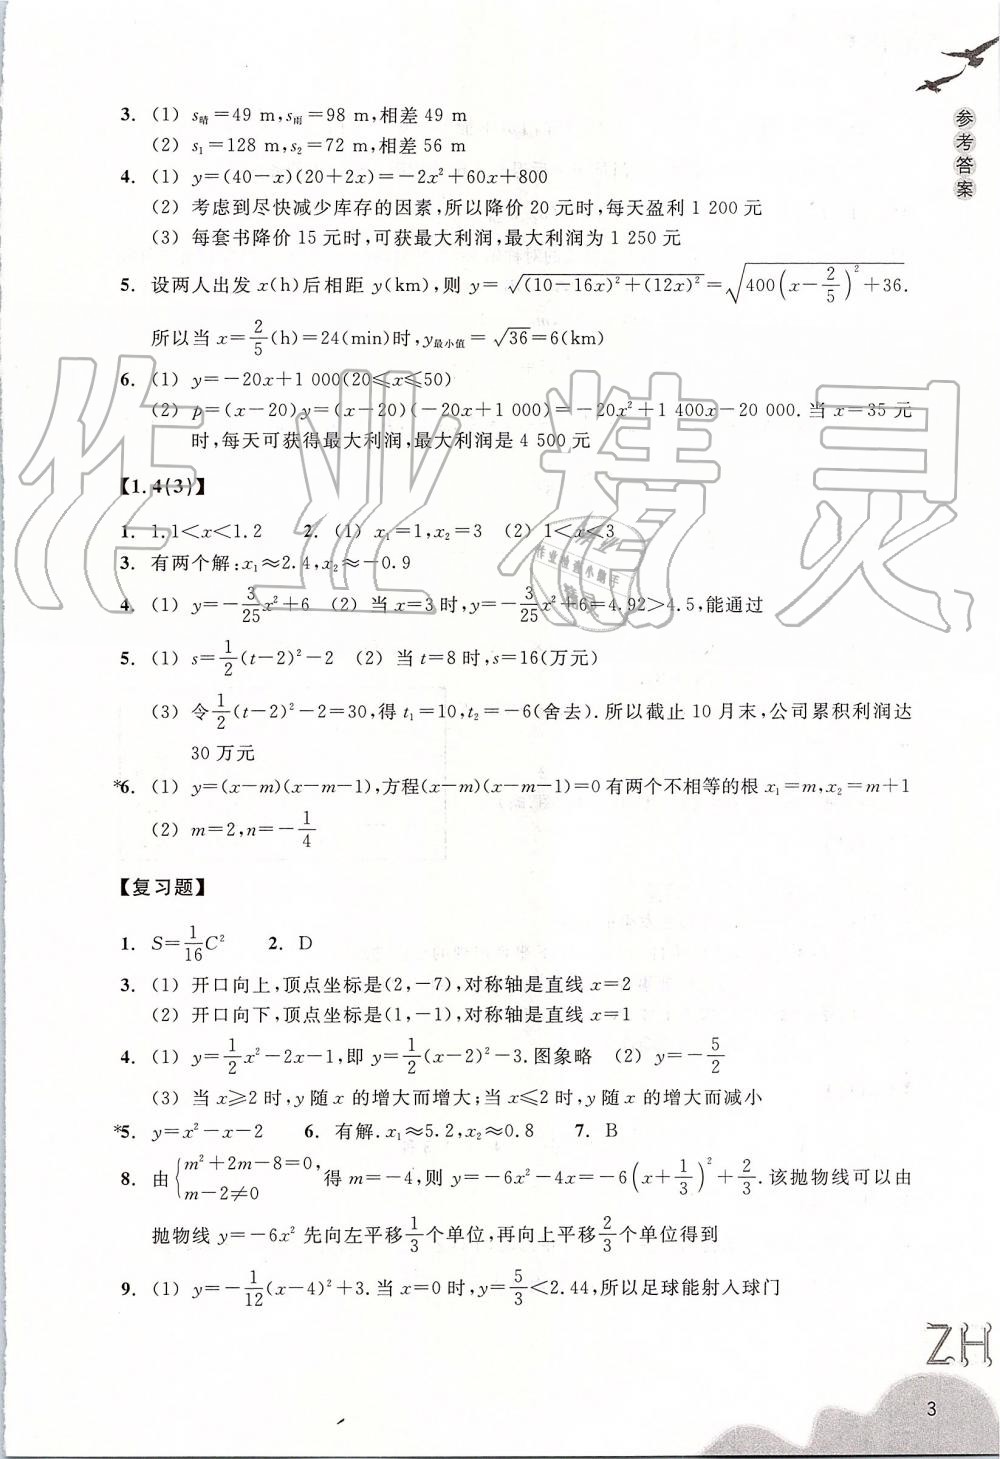 参考答案
3. (1) s晴=49 m,s雨=98 m,相差 49 m
(2) s₁=128 m,s₂=72 m,相差 56 m
4. (1) y=(40-x)(20+2x)=-2x²+60x+800
(2) 考虑到尽快减少库存的因素,所以降价 20 元时,每天盈利 1 200 元
(3) 每套书降价 15 元时,可获最大利润,最大利润为 1 250 元
5. 设两人出发 x(h)后相距 y(km),则 y=√((10-16x)²+(12x)²)=√(400(x-2/5)²+36).
所以当 x=2/5(h)=24(min)时,y最小值=√36=6(km)
6. (1) y=-20x+1 000(20≤x≤50)
(2) p=(x-20)y=(x-20)(-20x+1 000)=-20x²+1 400x-20 000. 当 x=35 元
时,每天可获得最大利润,最大利润是 4 500 元
【1.4(3)】
1. 1.1<x<1.2 2. (1) x₁=1,x₂=3 (2) 1<x<3
3. 有两个解:x₁≈2.4,x₂≈-0.9
4. (1) y=-3/25x²+6 (2) 当 x=3 时,y=-3/25x²+6=4.92>4.5,能通过
5. (1) s=1/2(t-2)²-2 (2) 当 t=8 时,s=16(万元)
(3) 令1/2(t-2)²-2=30,得 t₁=10,t₂=-6(舍去).所以截止 10 月末,公司累积利润达
30 万元
*6. (1) y=(x-m)(x-m-1),方程(x-m)(x-m-1)=0 有两个不相等的根 x₁=m,x₂=m+1
(2) m=2,n=-1/4
【复习题】
1. S=1/16C² 2. D
3. (1) 开口向上,顶点坐标是(2,-7),对称轴是直线 x=2
(2) 开口向下,顶点坐标是(1,-1),对称轴是直线 x=1
4. (1) y=1/2x²-2x-1,即 y=1/2(x-2)²-3.图象略 (2) y=-5/2
(3) 当 x≥2 时,y 随 x 的增大而增大;当 x≤2 时,y 随 x 的增大而减小
*5. y=x²-x-2 6. 有解.x₁≈5.2,x₂≈0.8 7. B
8. 由{m²+2m-8=0, m-2≠0 得 m=-4,则 y=-6x²-4x=-6(x+1/3)²+2/3.该抛物线可以由
抛物线 y=-6x² 先向左平移1/3个单位,再向上平移2/3个单位得到
9. (1) y=-1/12(x-4)²+3.当 x=0 时,y=5/3<2.44,所以足球能射入球门
ZH
3
作业精灵